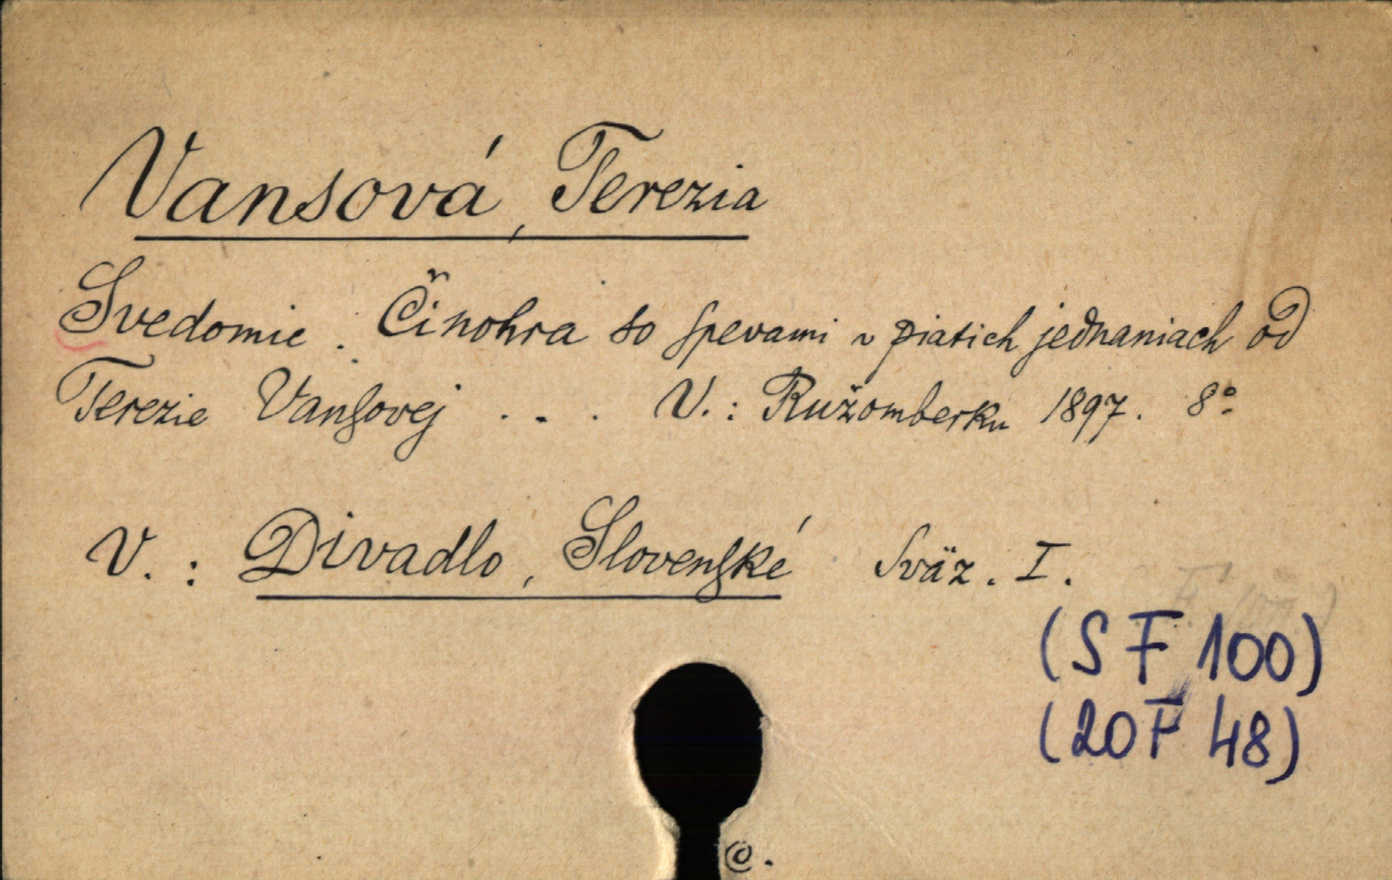 Vansová, Terezia
Svedomie. Činohra so spevami v piatich jednaniach od
Terezie Vansovej . . . V.: Ružomberku 1897. 8°
V.: Divadlo, Slovenské Sväz. I.
(S F 100)
(20 F 48)